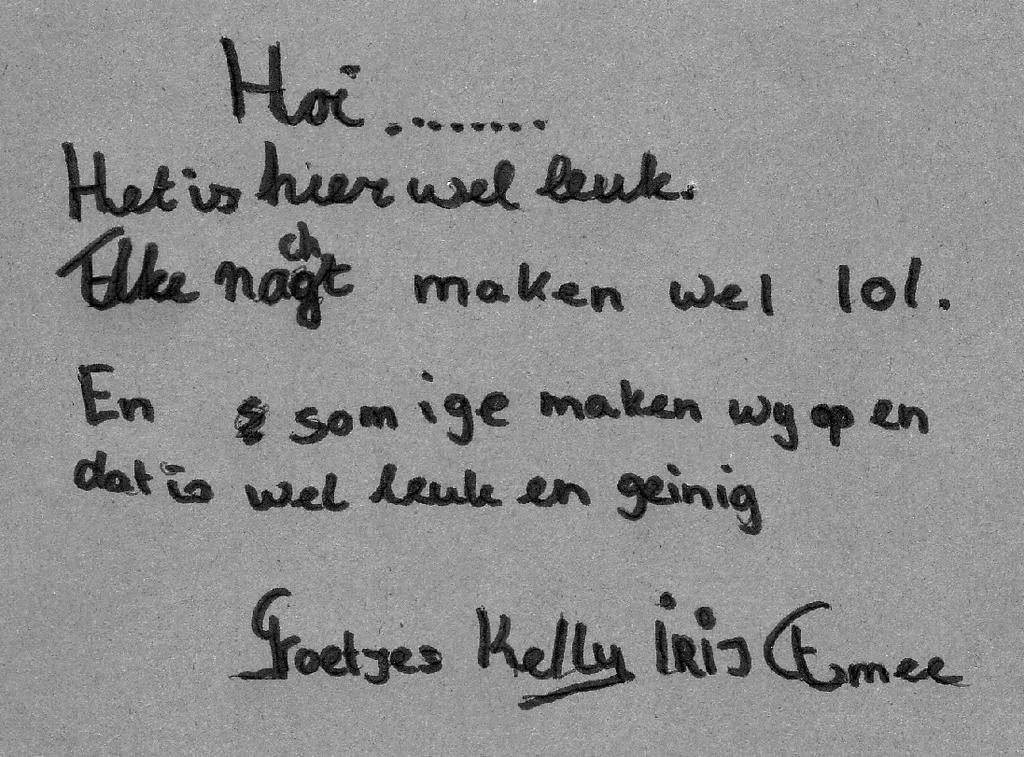 Hoi ........
Het is hier wel leuk.
Elke nacht maken wel lol.
En somige maken wy op en
dat is wel leuk en geinig
Groetjes Kelly Iris Esmee